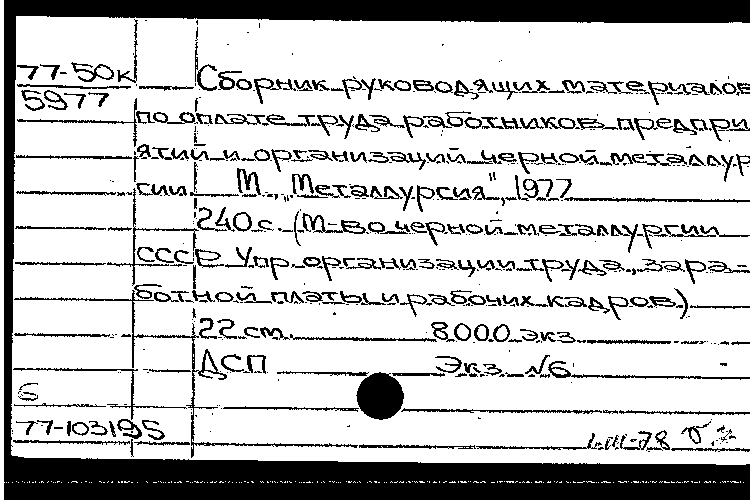 77-50к
5977
Сборник руководящих материалов
по оплате труда работников предпри
ятий и организаций черной металлур
гии. М., „Металлургия", 1977
240 с. (М-во черной металлургии
СССР Упр. организации труда, зара-
ботной платы и рабочих кадров.)
22 ст. 8000 экз
ДСП Экз. №6
6
77-103195